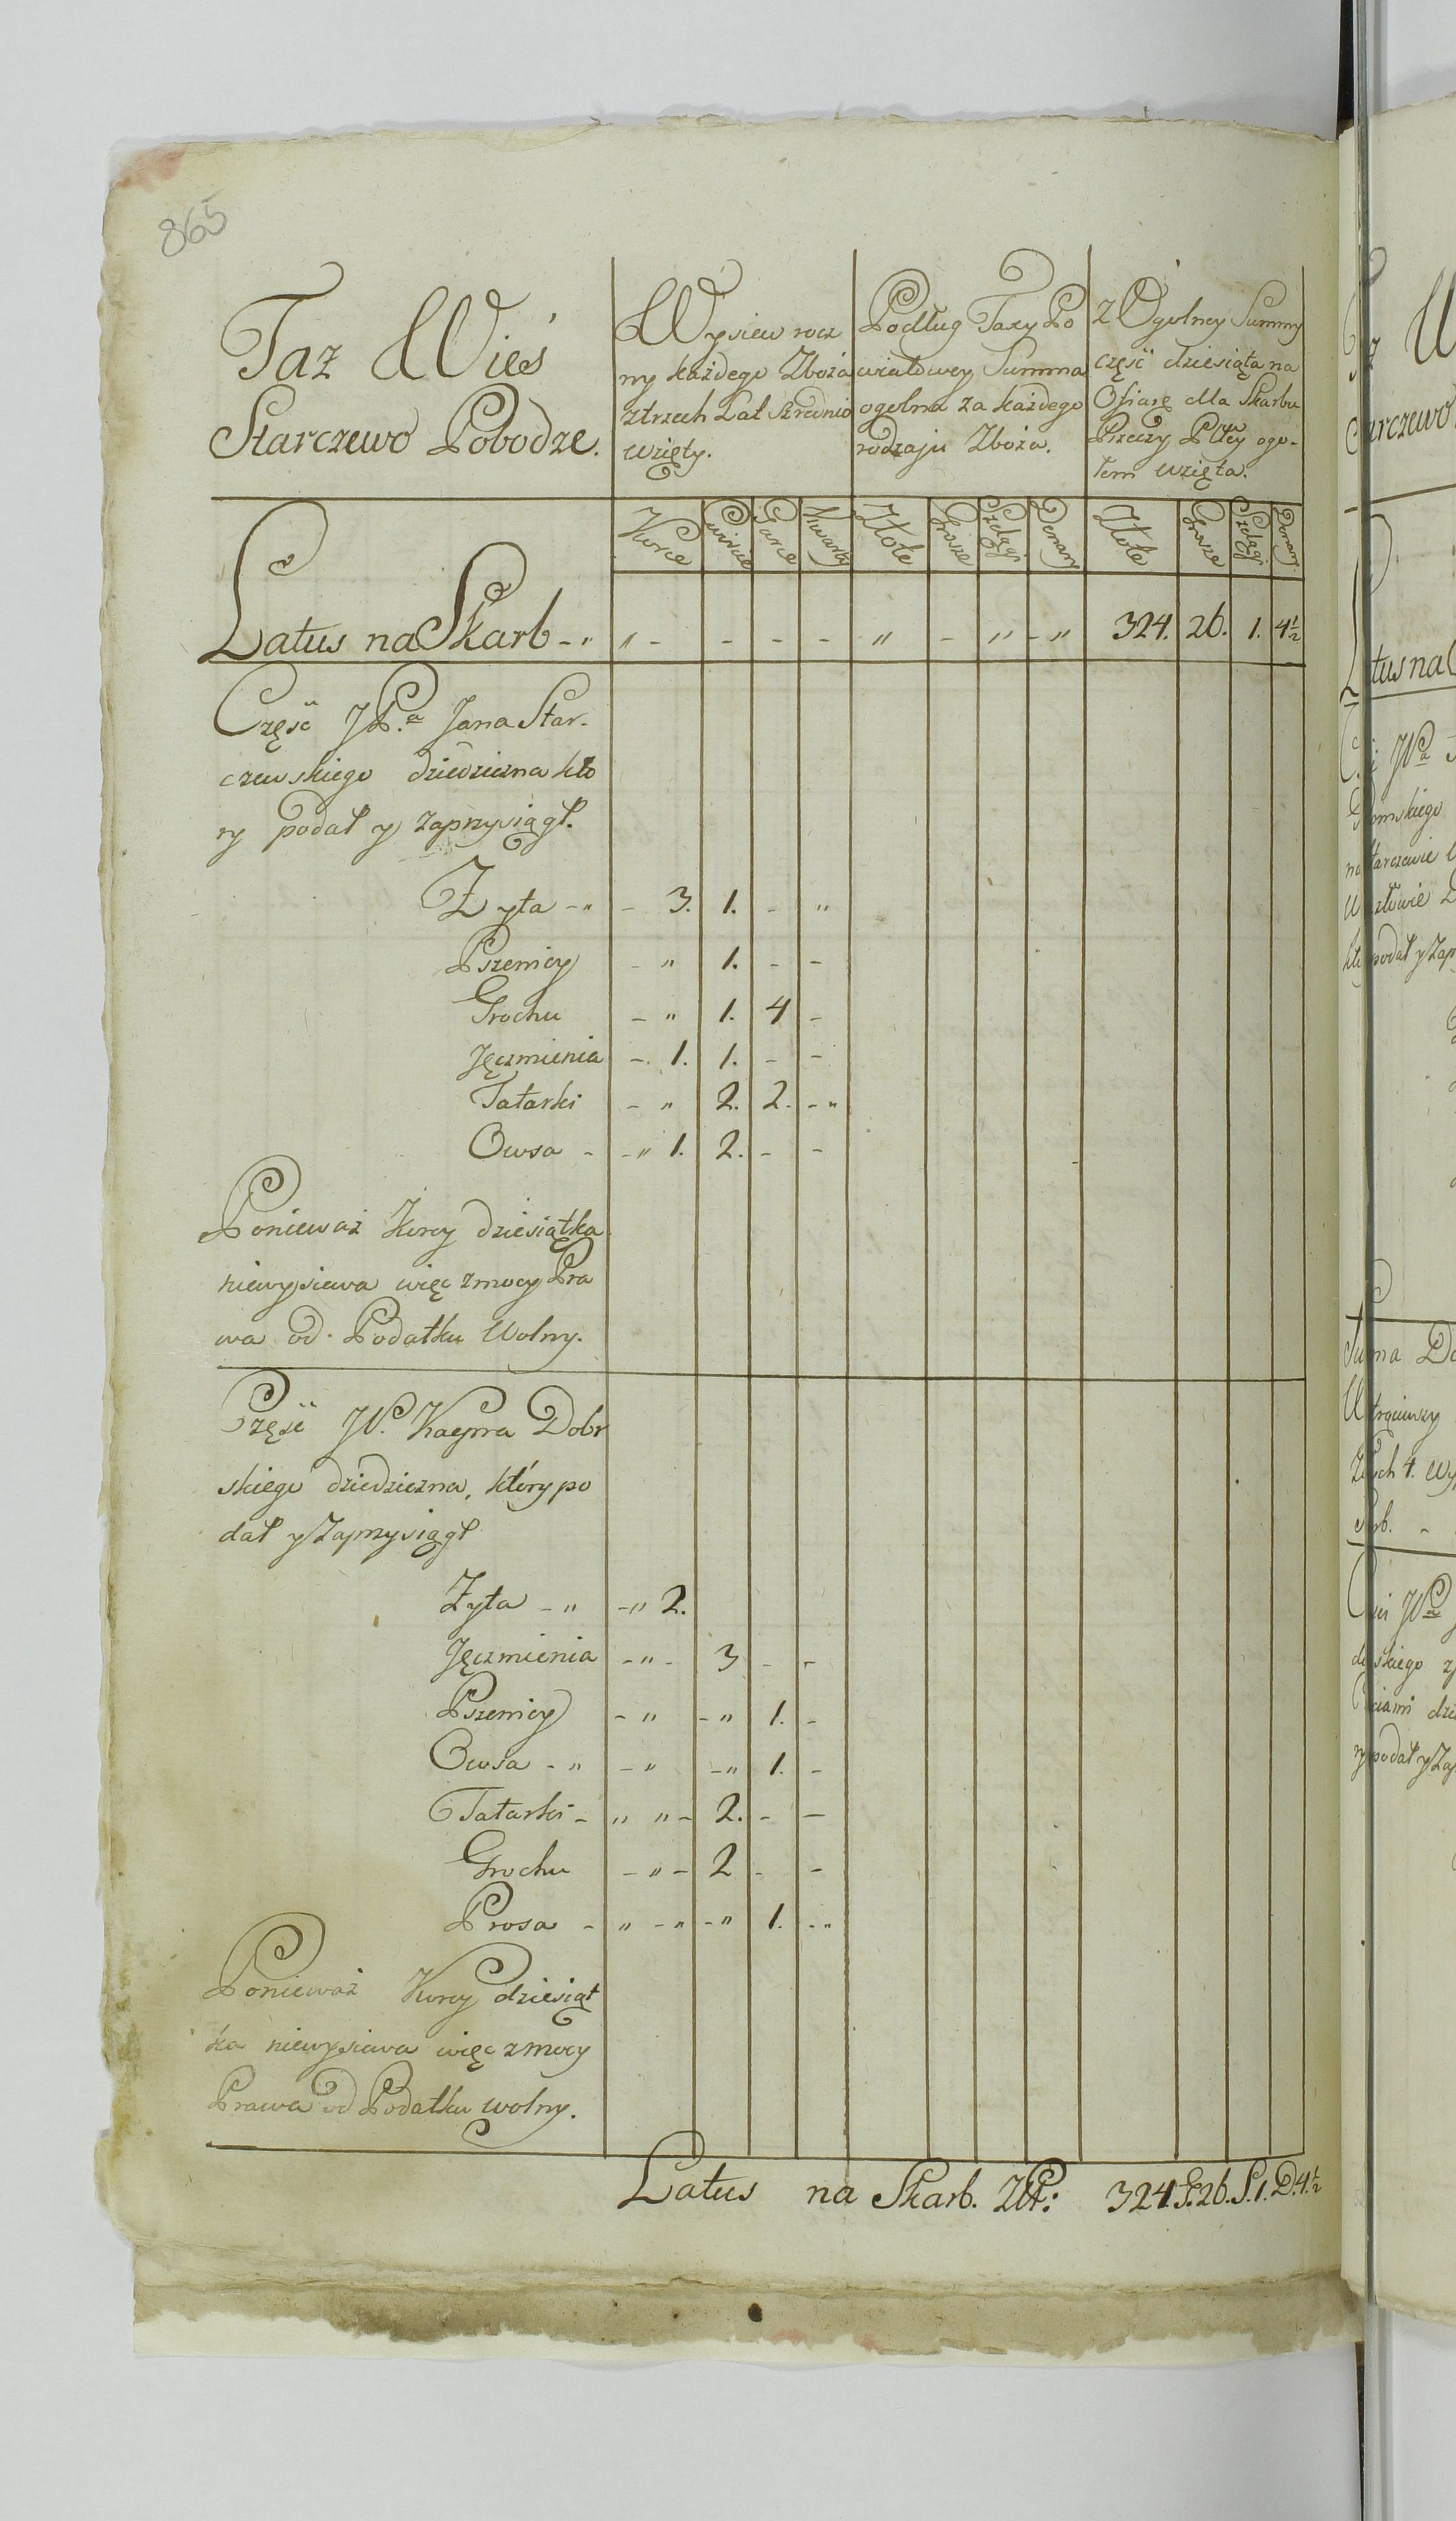 865
Taz Wieś
Starczewo Pobodze.
Wysiew rocz
ny każdego Zboża
ztrzech Lat Szrednio
wzięty.
Podług Taxy Po
wiatowey Summa
ogolna za każdego
rodzaju Zboża.
Z Ogolney Summy
część dziesiąta na
Ofiarę dla Skarbu
Rzeczy Pltey ogo-
łem wzięta.
Korce Cwierci Garce Kwarty Złote Grosze Szelągi Denary Złote Grosze Szelągi Denary
Latus na Skarb -„ „ - - - - „ - „ - „ 324. 26. 1. 4½
Część JP.a Jana Star-
czewskiego dziedziczna kto
ry podał y zaprzysiągł.
Zyta -„ - 3. 1. - „
Pszenicy - „ 1. - -
Grochu - „ 1. 4 -
Jęczmienia -. 1. 1. - -
Tatarki - „ 2. 2. - „
Owsa - -„ 1. 2. - -
Ponieważ Korcy dziesiątka
niewysiewa więc zmocy Pra
wa od Podatku Wolny.
Część JP. Kacpra Dobr
skiego dziedziczna, który po
dał y Zaprzysiągł
Zyta -„ -„ 2.
Jęczmienia -„- 3 - -
Pszenicy -„ -„ 1. -
Owsa -„ -„ -„ 1. -
Tatarki - „ „- 2. - -
Grochu -„- 2 - -
Prosa - „ -„ -„ 1. -„
Ponieważ Korcy dziesiąt
ka niewysiewa więc zmocy
Prawa od Podatku wolny.
Latus na Skarb. Złt: 324 G.26. S.1. D.4½